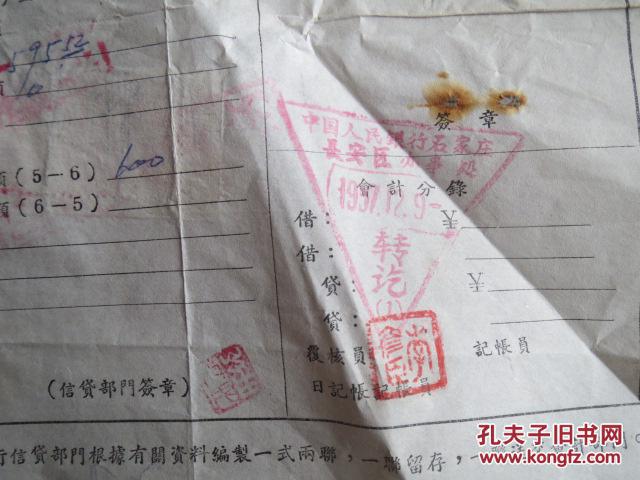 59552
簽章
中国人民銀行石家庄
長安区办事处
額(5-6) 600
額(6-5)
會計分錄
1957.12.9
借：
借：
转讫
(1)
貸：
貸：
覆核員
記帳員
(信貸部門簽章)
日記帳記帳員
行信貸部門根據有關資料編製一式兩聯，一聯留存，一聯
孔夫子旧书网
KONGFZ.COM